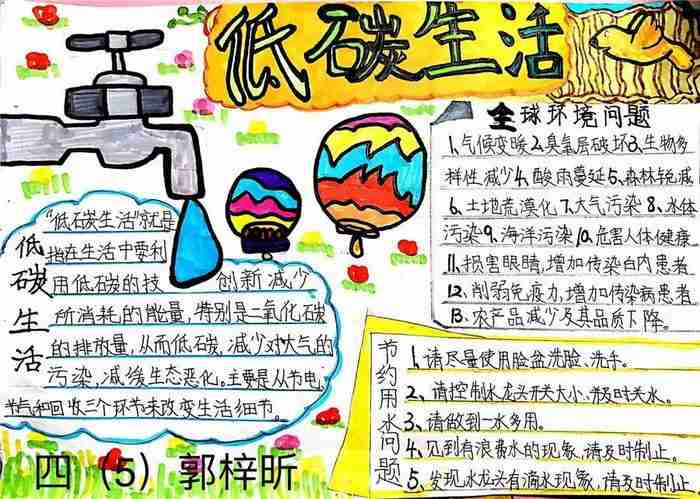 低碳生活
全球环境问题
1、气候变暖2、臭氧层破坏3、生物多
样性减少4、酸雨蔓延5、森林锐减
6、土地荒漠化7、大气污染8、水体
污染9、海洋污染10、危害人体健康
11、损害眼睛,增加传染白内患者
12、削弱免疫力,增加传染病患者
13、农产品减少及其品质下降。
低碳生活
“低碳生活”就是
指在生活中要利
用低碳的技 创新减少
所消耗的能量,特别是二氧化碳
的排放量,从而低碳,减少对大气的
污染,减缓生态恶化。主要是从节电,
节气和回收三个环节来改变生活细节。
节约用水问题
1、请尽量使用脸盆洗脸、洗手。
2、请控制水龙头开关大小,并及时关水。
3、请做到一水多用。
4、见到有浪费水的现象,请及时制止。
5、发现水龙头有滴水现象,请及时制止
四 (5) 郭梓昕